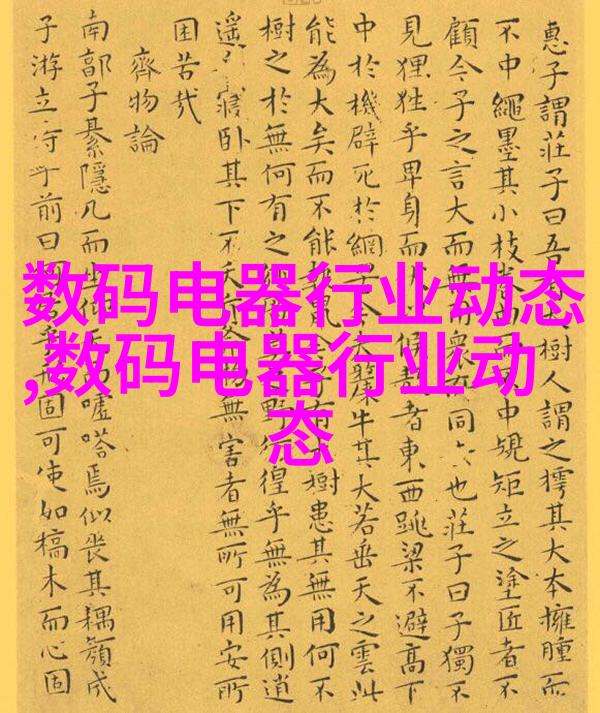 数码电器行业动态
,数码电器行业动
态
惠子謂莊子曰吾樹人謂之樗其大本擁腫而
不中繩墨其小枝中規矩立之塗匠者不
顧今子之言大而無衆同去也莊子曰子獨不
見狸狌乎卑身而候敖者東西跳梁不避高下
中於機辟死於網斄牛其大若垂天之雲此
能為大矣而不能鼠今子有大樹患其無用何不
樹之於無何有之野彷徨乎無為其側逍
遙寢卧其下不夭物無害者無所可用安所
困苦哉
齊物論
南郭子綦隱几而坐仰噓嗒焉似喪其耦顏成
子游立侍乎前曰固可使如槁木而心固